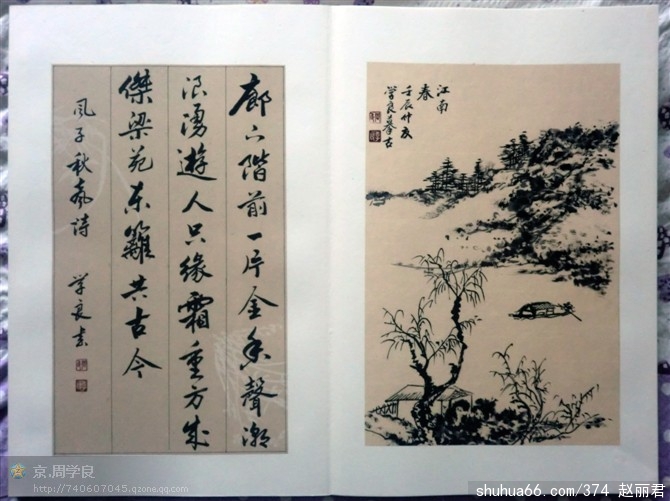 廊下階前一片金香聲潮
浪湧遊人只緣霜重方成
傑梁苑東籬共古今
风子秋詩 学良書
江南
春
壬辰仲夏
学良摹古
京.周学良
http://740607045.qzone.qq.com
shuhua66.com/374 赵丽君